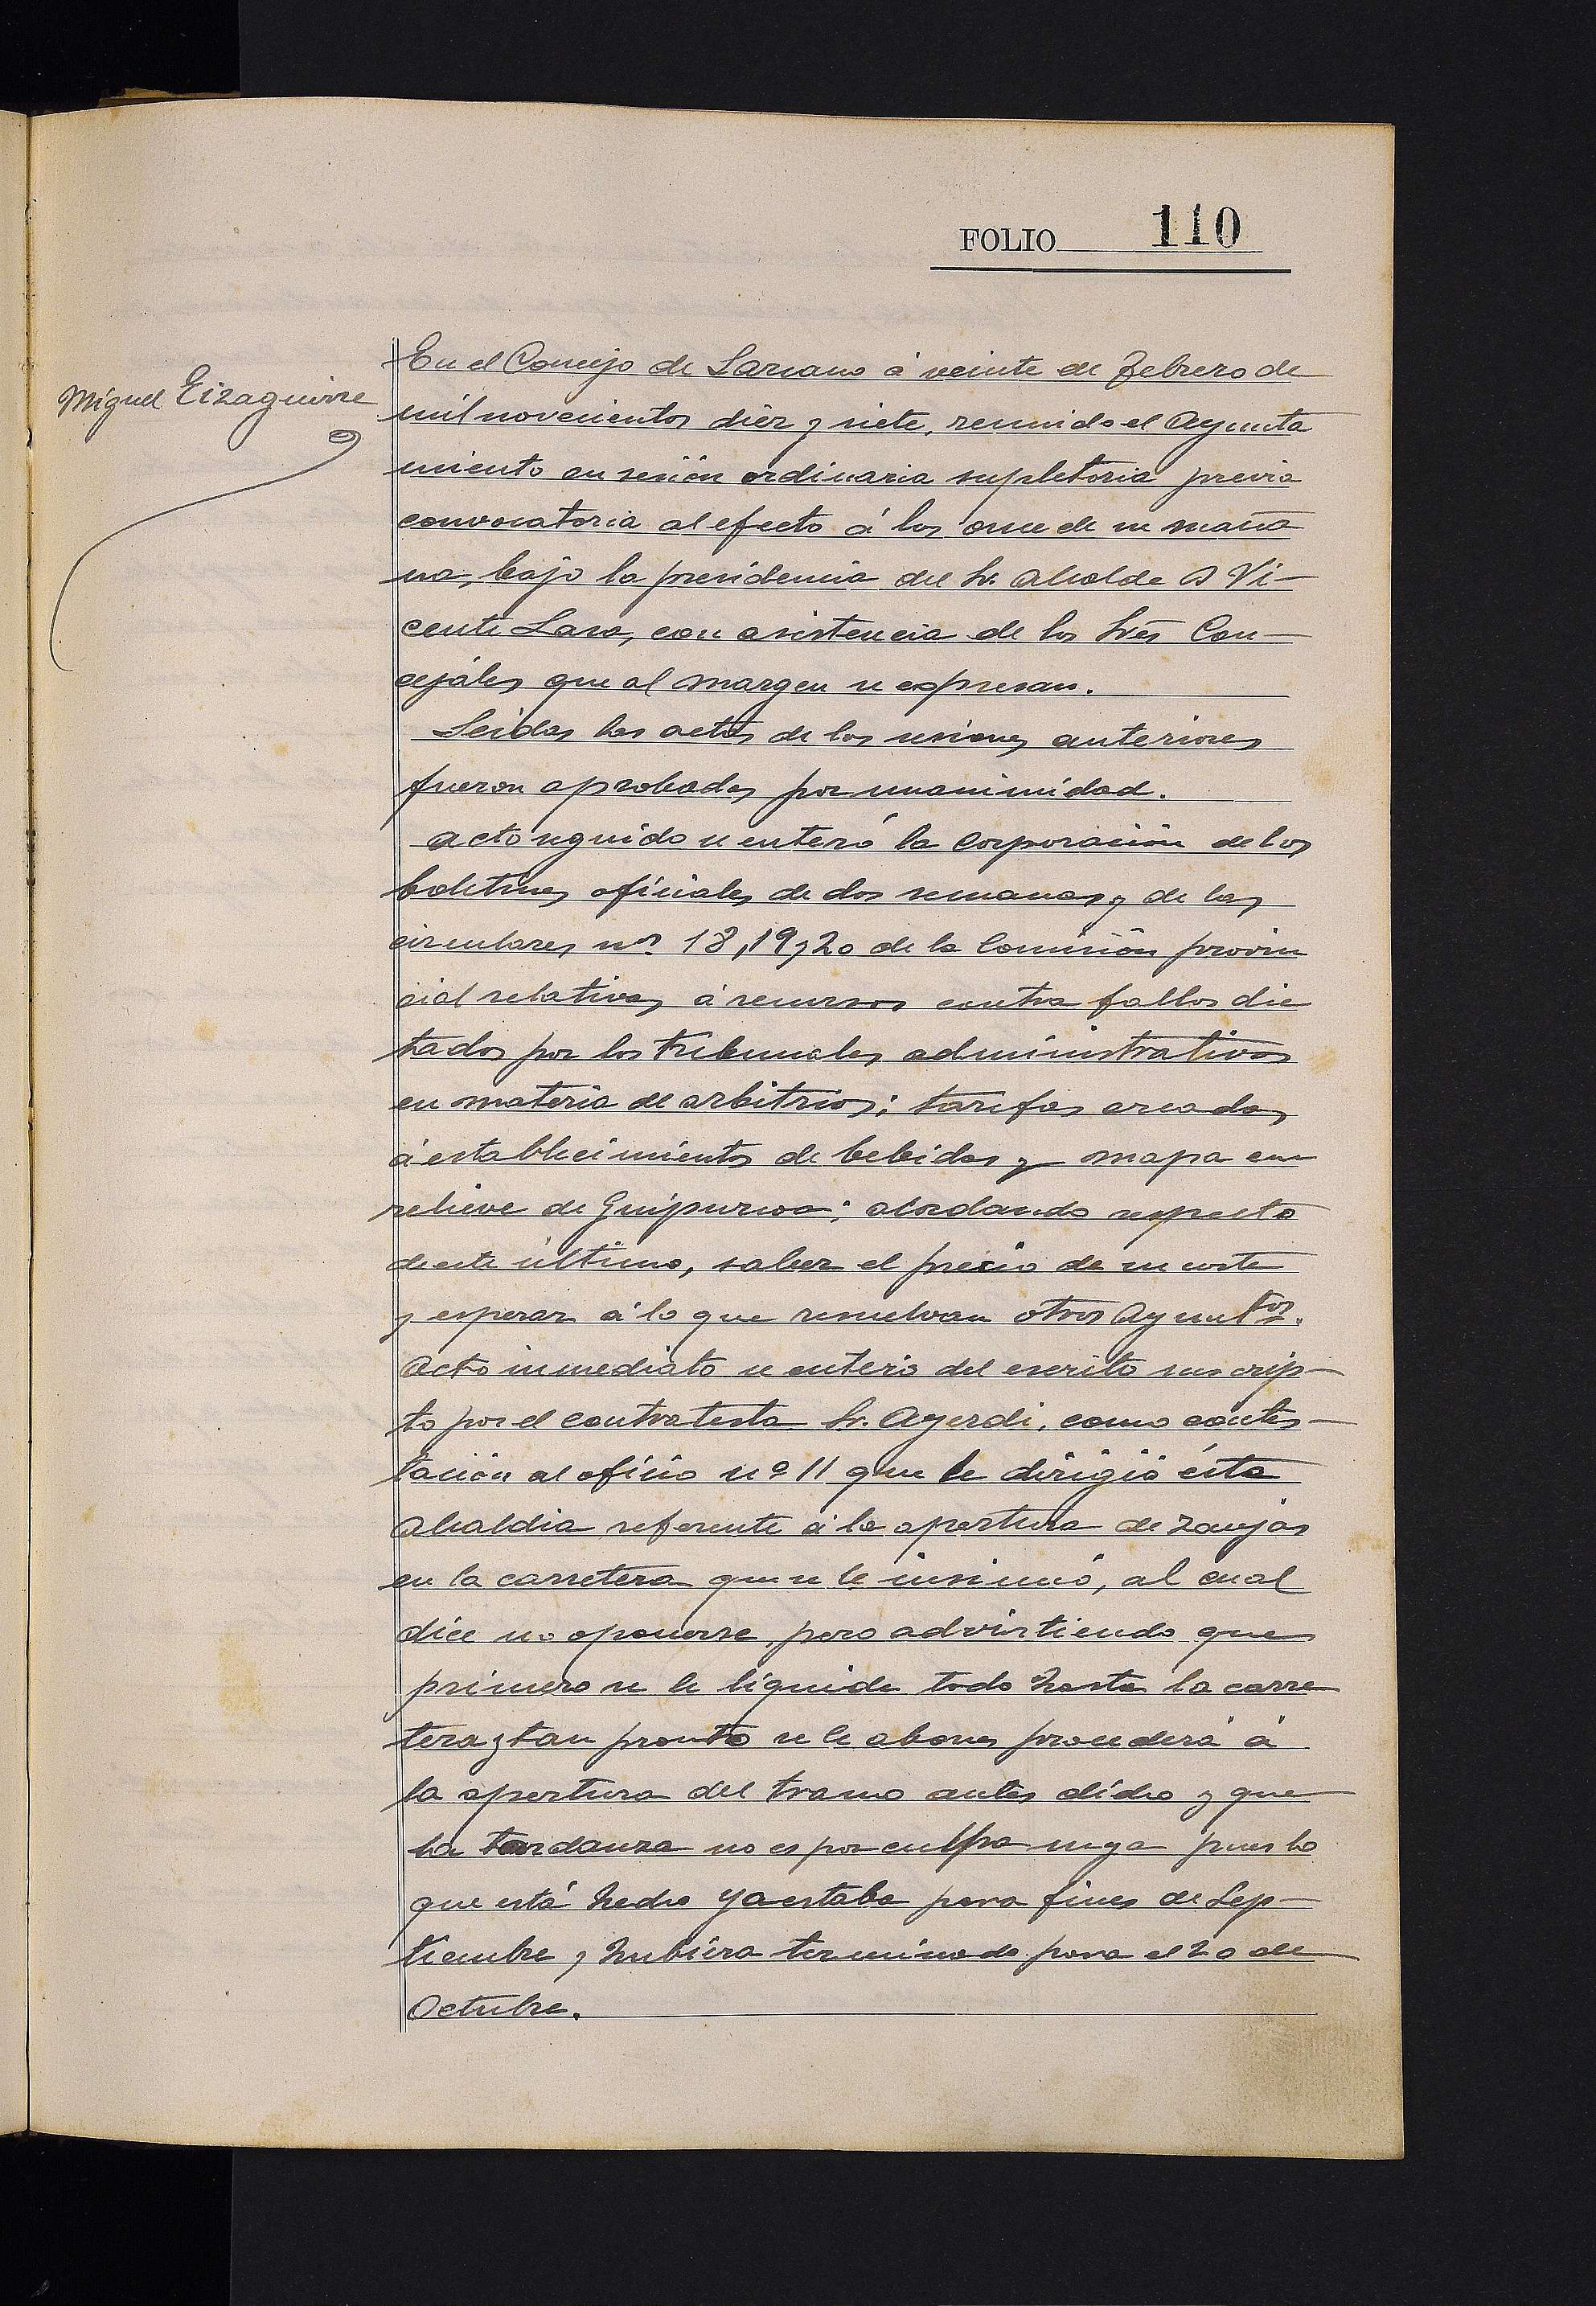 FOLIO 110
Miguel Eizaguirre
En el Concejo de Larcano á veinte de Febrero de
mil novecientos diez y siete, reunido el Ayunta
miento en sesión ordinaria supletoria previa
convocatoria al efecto á las once de su maña
na, bajo la presidencia del Sr. Alcalde D Vi-
cente Lasa, con asistencia de los Srēs Con-
cejáles que al margen se expresan.
Leidas las actas de las sesiones anteriores
fueron aprobadas por unanimidad.
Acto seguido se enteró la Corporación de los
boletines oficiales de dos semanas y de las
circulares nos. 18, 19 y 20 de la Comisión provin
cial relativas á recursos contra fallos dic
tados por los tribunales administrativos
en materia de arbitrios; tarifas creadas
á establecimientos de bebidas y mapa en
relieve de Guipuzcoa; acordando respecto
de este último, saber el precio de su coste
y esperar á lo que resuelvan otros Ayuntos.
Acto inmediato se enteró del escrito suscrip-
to por el contratista Sr. Ayerdi, como contes-
tación al oficio nº 11 que le dirigió ésta
Alcaldia referente á la apertura de zanjas
en la carretera que se le insinuó, al cual
dice no oponerse, pero advirtiendo que
primero se le liquide todo hasta la carre
tera y tan pronto se le abones procederá á
la apertura del tramo antes dicho y que
la tardanza no es por culpa suya pues lo
que está hecho ya estaba para fines de Sep-
tiembre y hubiera terminado para el 20 de
Octubre.